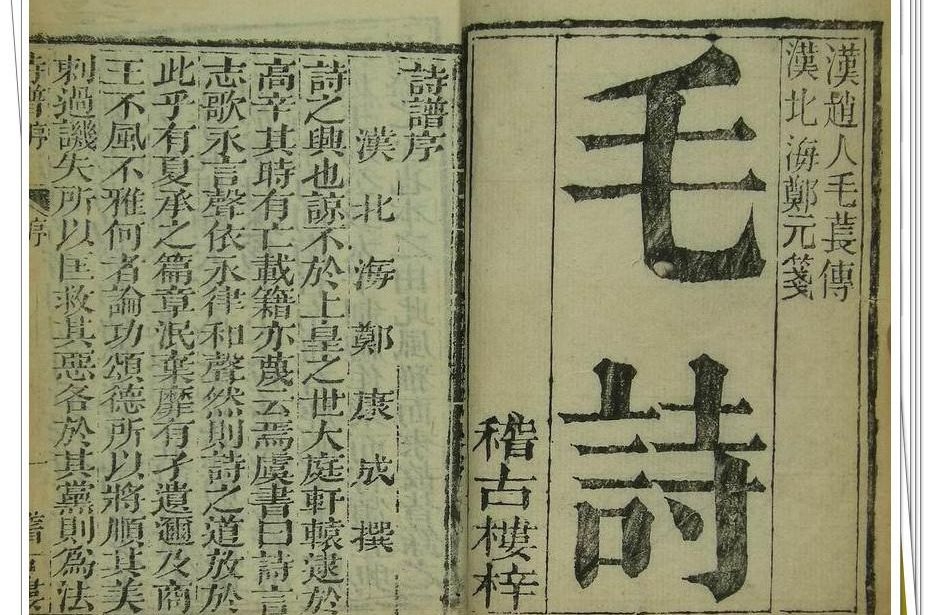 漢趙人毛萇傳
漢北海鄭元箋
毛詩
稽古樓梓
詩譜序
漢北海鄭康成撰
詩之興也諒不於上皇之世大庭軒轅逮於
高辛其時有亡載籍亦蔑云焉虞書曰詩言
志歌永言聲依永律和聲然則詩之道放於
此乎有夏承之篇章泯棄靡有孑遺邇及商
王不風不雅何者論功頌德所以將順其美
刺過譏失所以匡救其惡各於其黨則為法
詩譜序 序 一